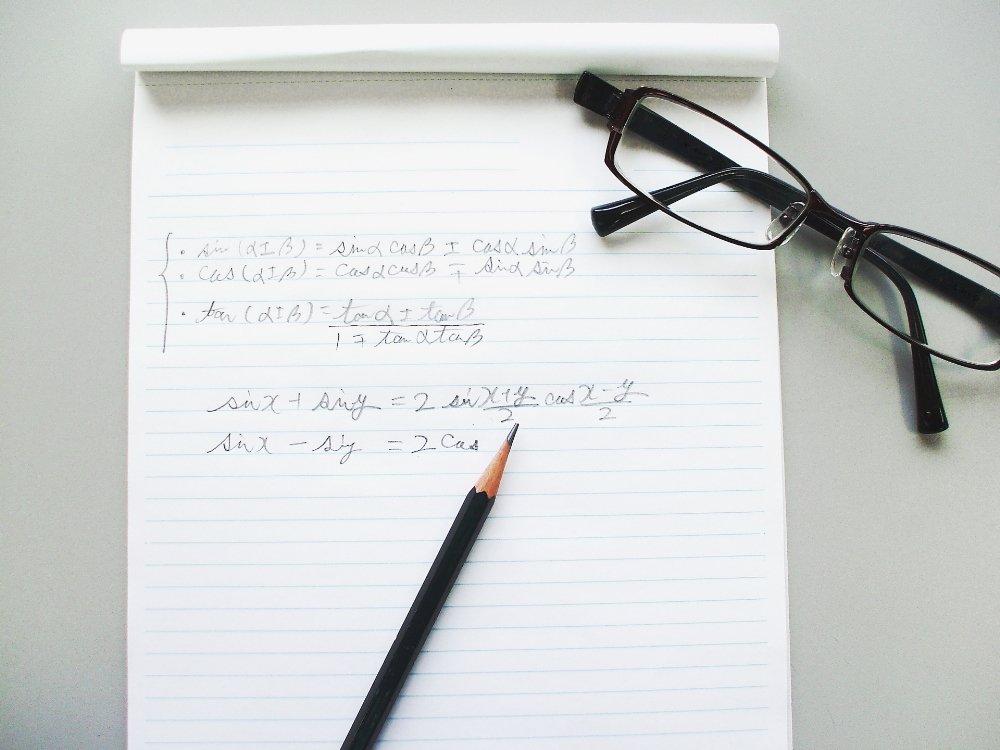 · sin (α±β) = sinα cosβ ± cosα sinβ
· cos (α±β) = cosα cosβ ∓ sinα sinβ
· tan (α±β) = tanα ± tanβ
1 ∓ tanα tanβ
sinx + siny = 2 sin x+y/2 cos x-y/2
sinx - siny = 2 cos